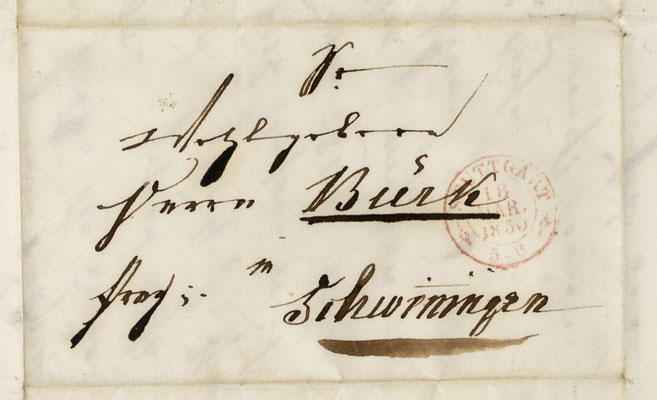 Sr
Wohlgeboren
Herrn Bürk
in
Schwiningen
STUTTGART
18
MAR.
1850
5-6